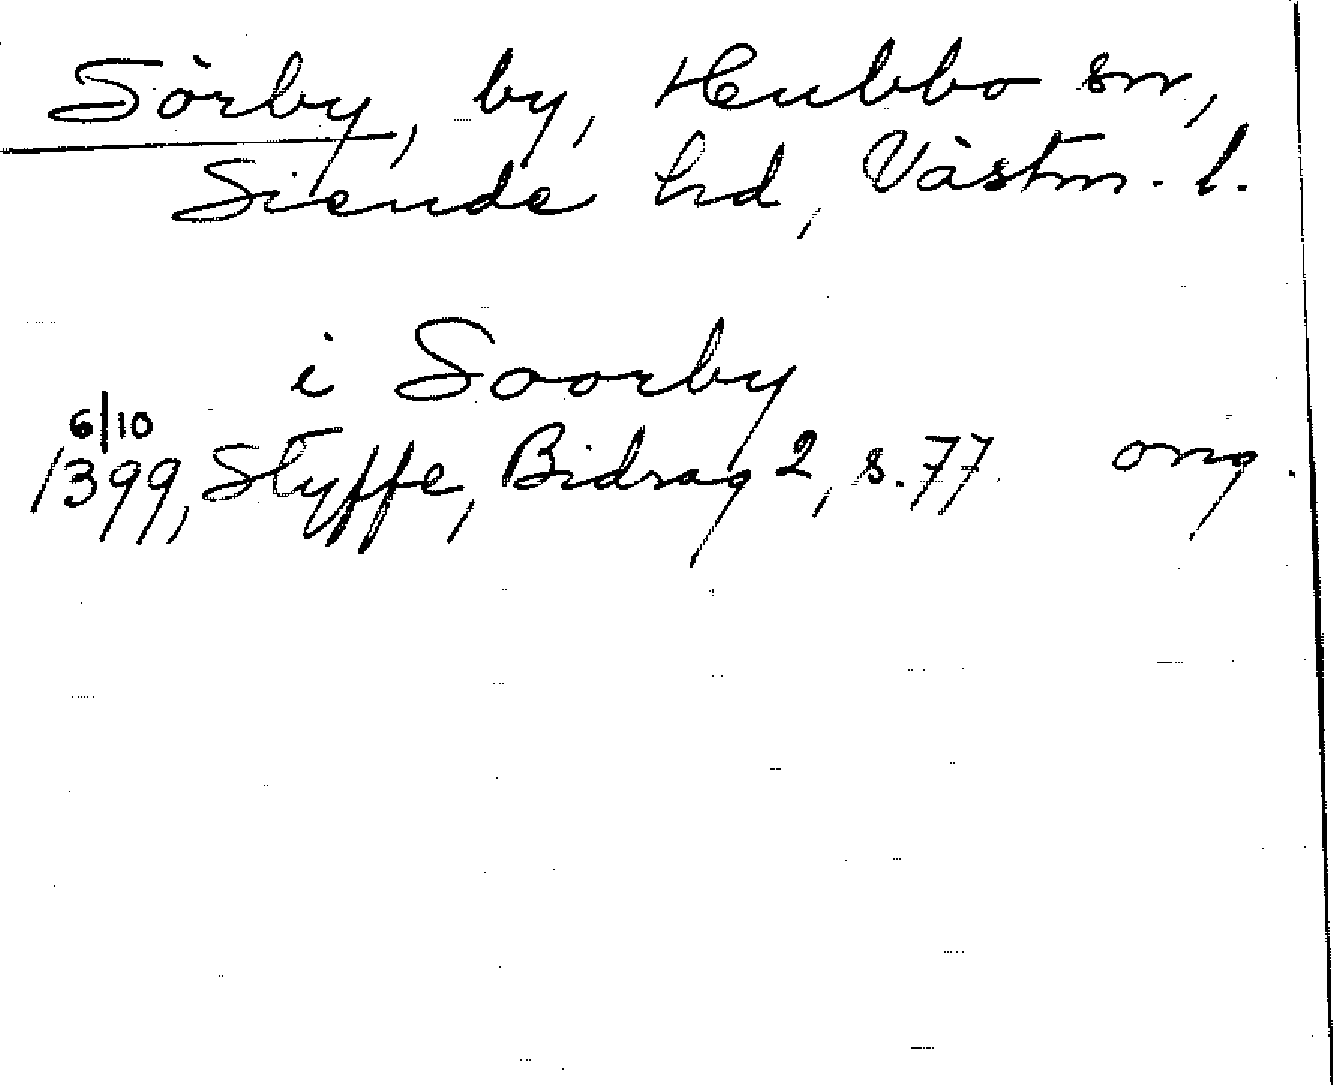 Sörby, by, Hubbo sn,
Siende hd, Västm. l.
i Soorby
6/10
1399, Styffe, Bidrag 2, s. 77. orig.